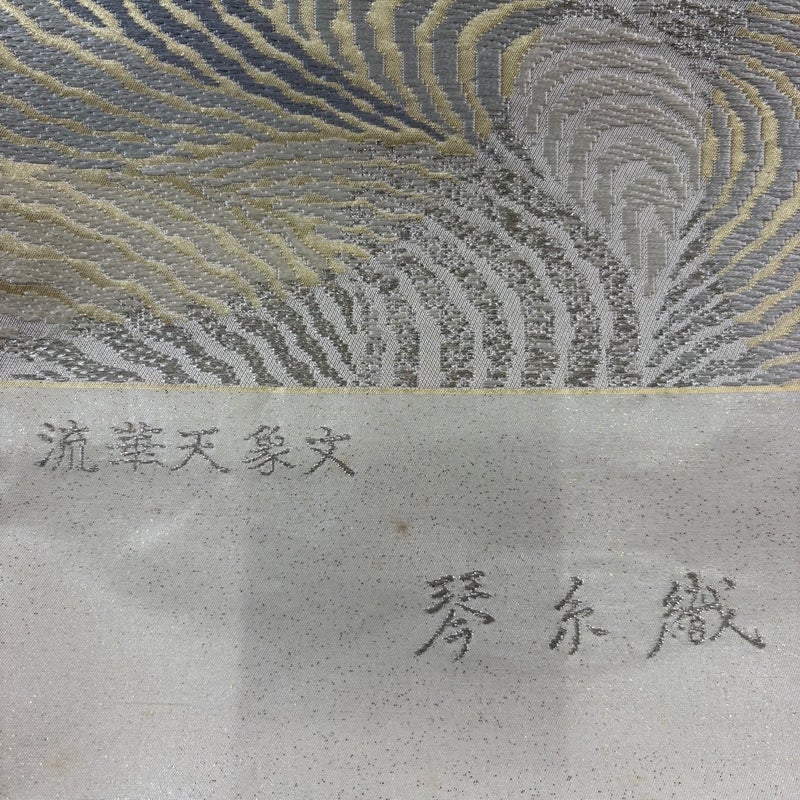 流華天象文
琴糸織